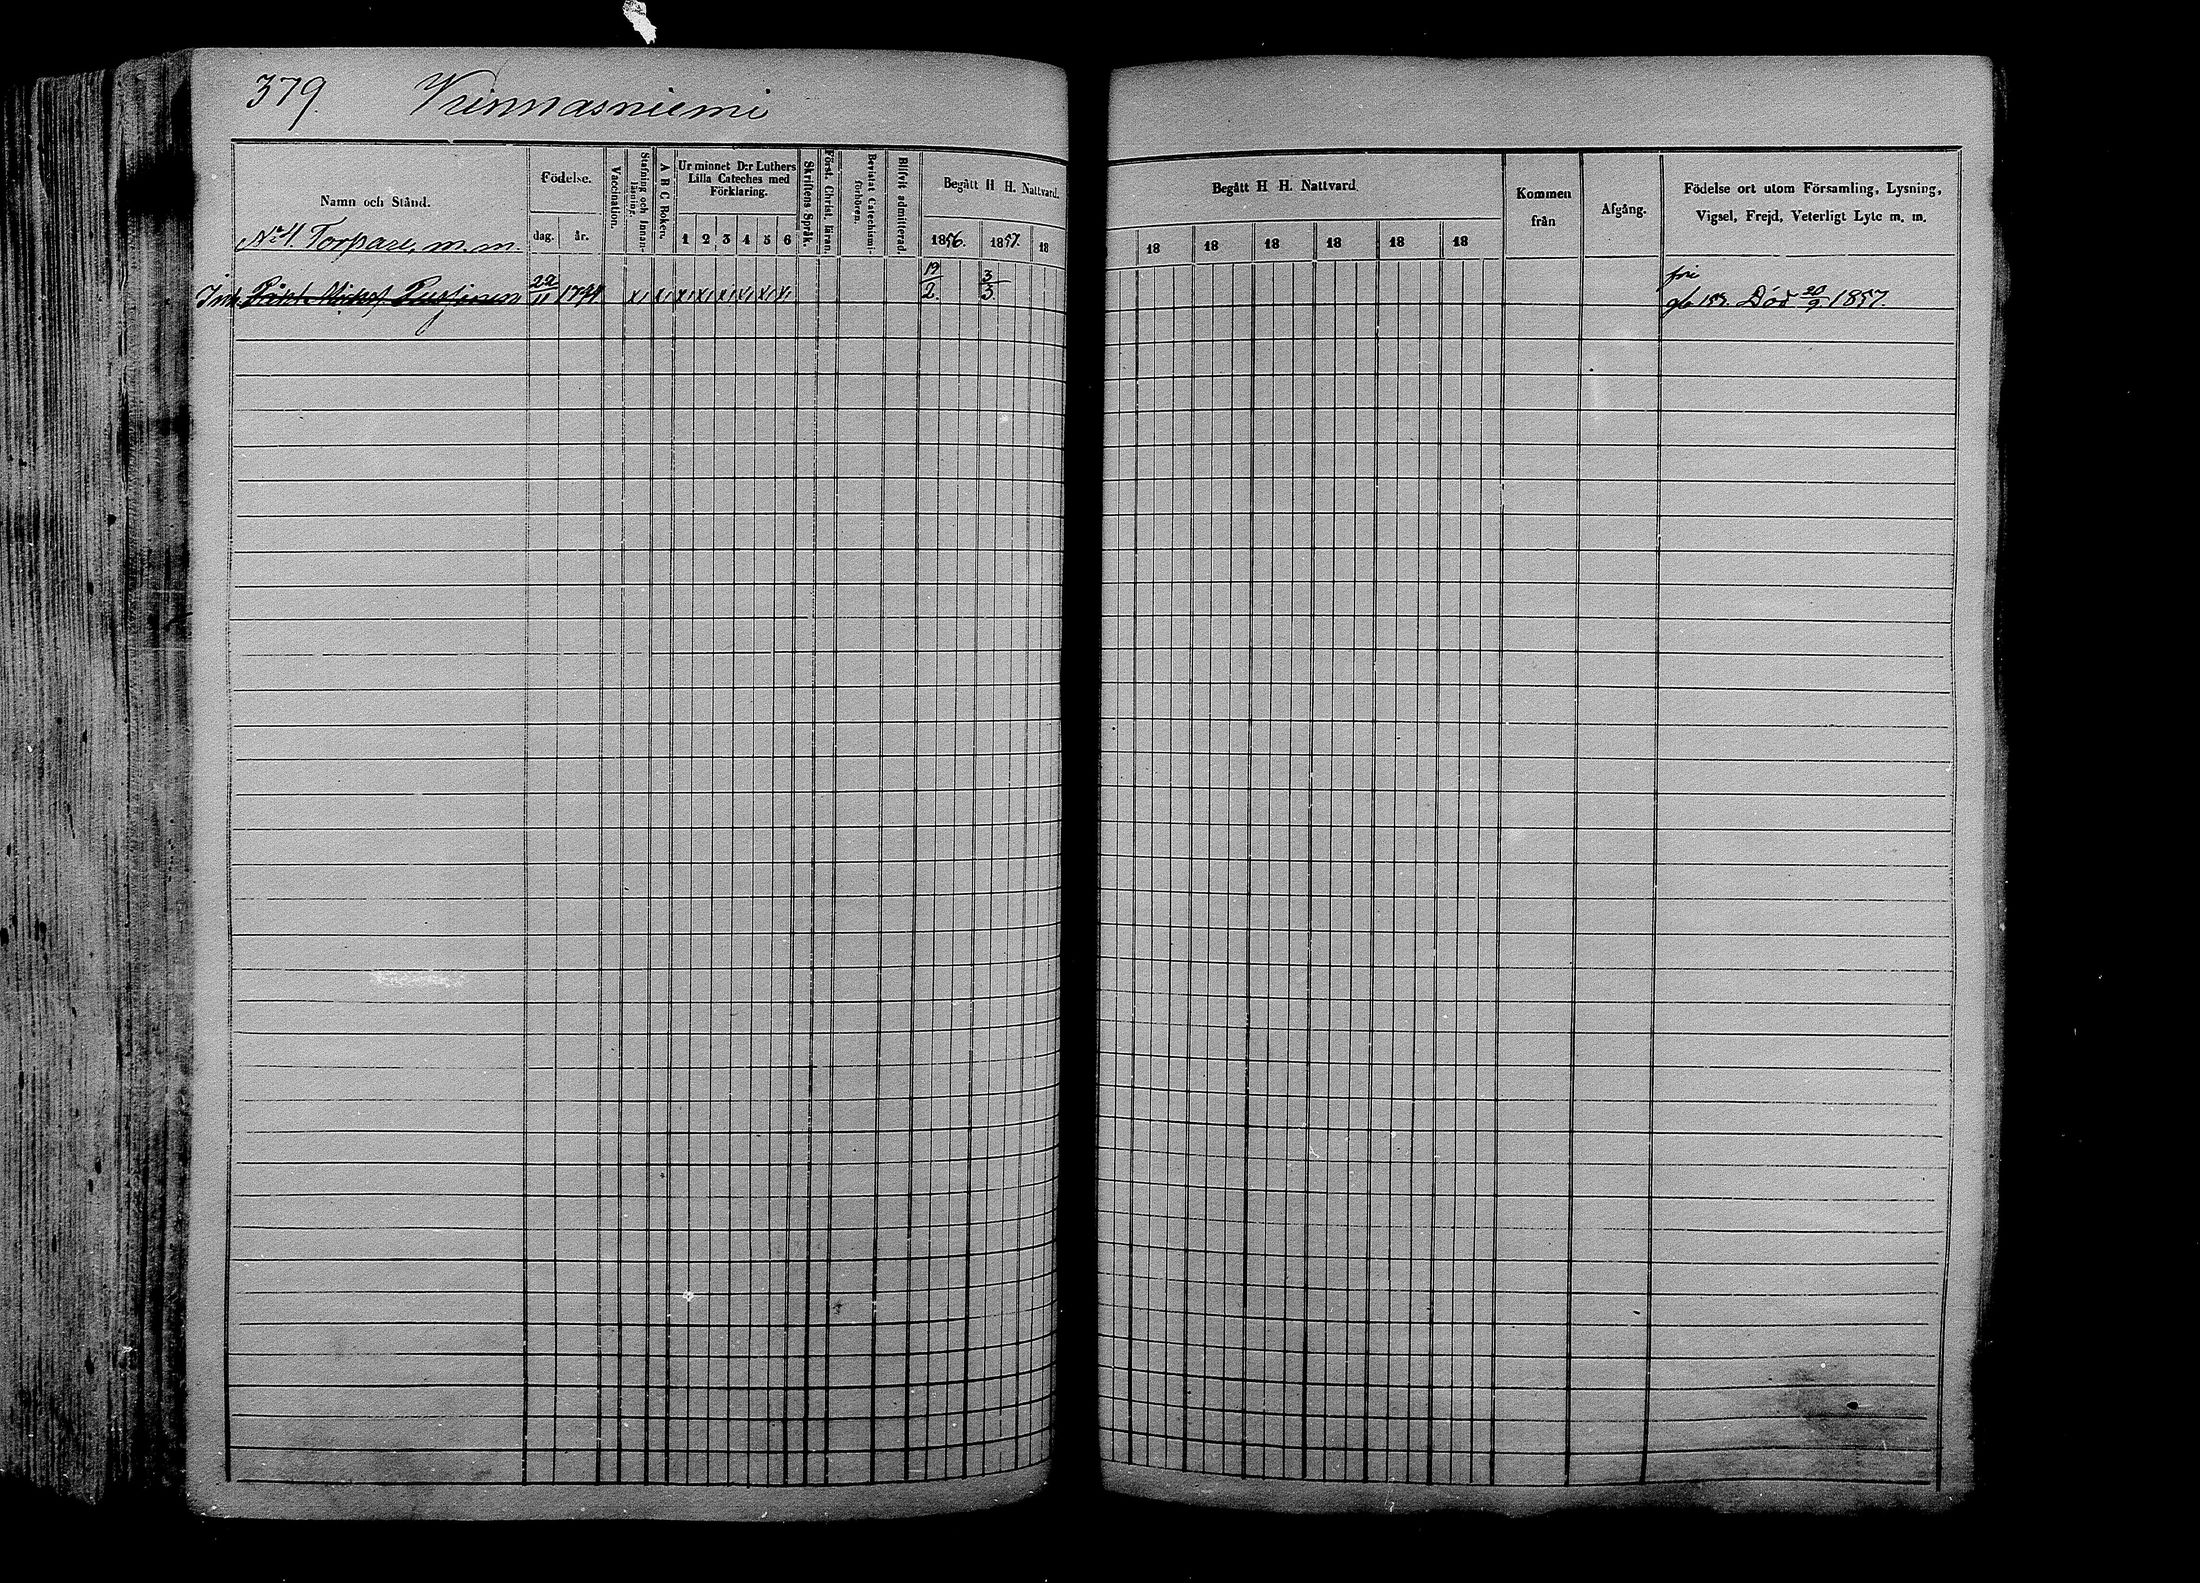 379. Vuinnasniemi
Namn och Stånd.
Födelse.
dag. år.
Vaccination.
Stafning och Innan-läsning.
A B C Boken.
Ur minnet D:r Luthers
Lilla Cateches med
Förklaring.
1 2 3 4 5 6
Skriftens Språk.
Först. Christ. läran.
Bevistat Catechismi-förhören.
Blifvit admitterad.
Begått H H. Nattvard.
1856. 1857. 18
Begått H H. Nattvard
18 18 18 18 18 18
Kommen
från
Afgång.
Födelse ort utom Församling, Lysning,
Vigsel, Frejd, Veterligt Lyte m. m.
No 4. Torpare, m. m.
Inh. 22/11 1791 x x x x x x x x 19/2. 3/3 fri
Död 20/9 1857.